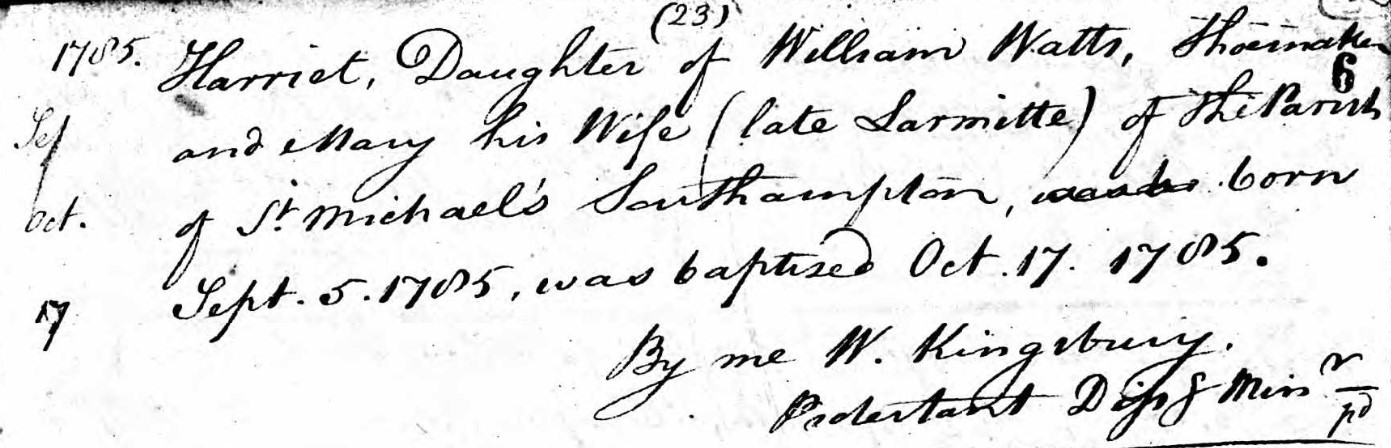 (23)
1785. Harriet, Daughter of William Watts, Shoemaker
6
Sep and Mary his Wife (late Larmitte) of the Parish
Oct. of St Michael's Southampton, born
17 Sept. 5. 1785, was baptised Oct. 17. 1785.
By me W. Kingsbury.
Protestant Dissg Minr
pd